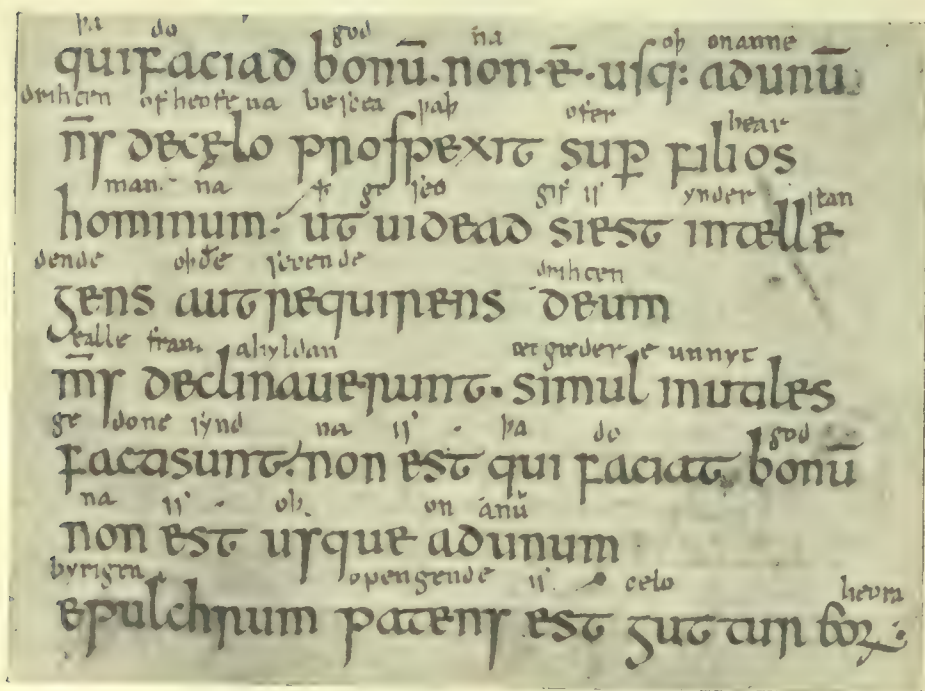 þa do god na oþ onanne
quifaciad bonū. non·ē·usq: adunū:
drihten ofheofenna besceaƿaþ ofer bear
n̄s decęlo prospexit sup filios
man na þ ge seo gif is ynder stan
hominum· ut uidead siest intelle
dende oþðe secende drihten
gens aut requirens deum
ealle fram ahyldan æt gæder e unnyt
m̄s declinauerunt· simul inutiles
ge done synd na is þa do god
factisunt· non est qui faciat bonū
na is oþ on anū
non est usque adunum
byrigen opengende is celo hievra
epulchrum patens est guttur eor·